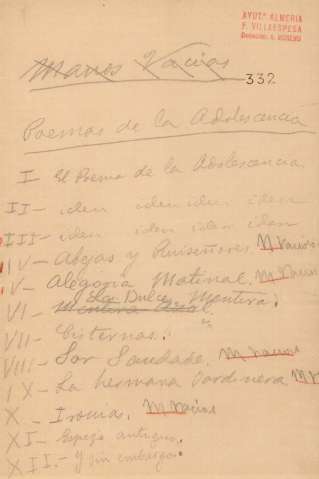 AYUTº ALMERIA
F. VILLAESPESA
Manos Vacías
332
Poemas de la Adolescencia
I El Poema de la Adolescencia
II - iden iden iden idem
III - iden iden iden idem
IV - Abejas y Ruiseñores. M Vacías
V - Alegoría Matinal. M. Vacías
La Dulce
VI - Mentira Mentira.
VII - Cisternas.
VIII - Sor Saudade. M Vacías
IX - La hermana Jardinera M
X - Ironías. M Vacías
XI - Espejo antiguo.
XII - Y sin embargo.